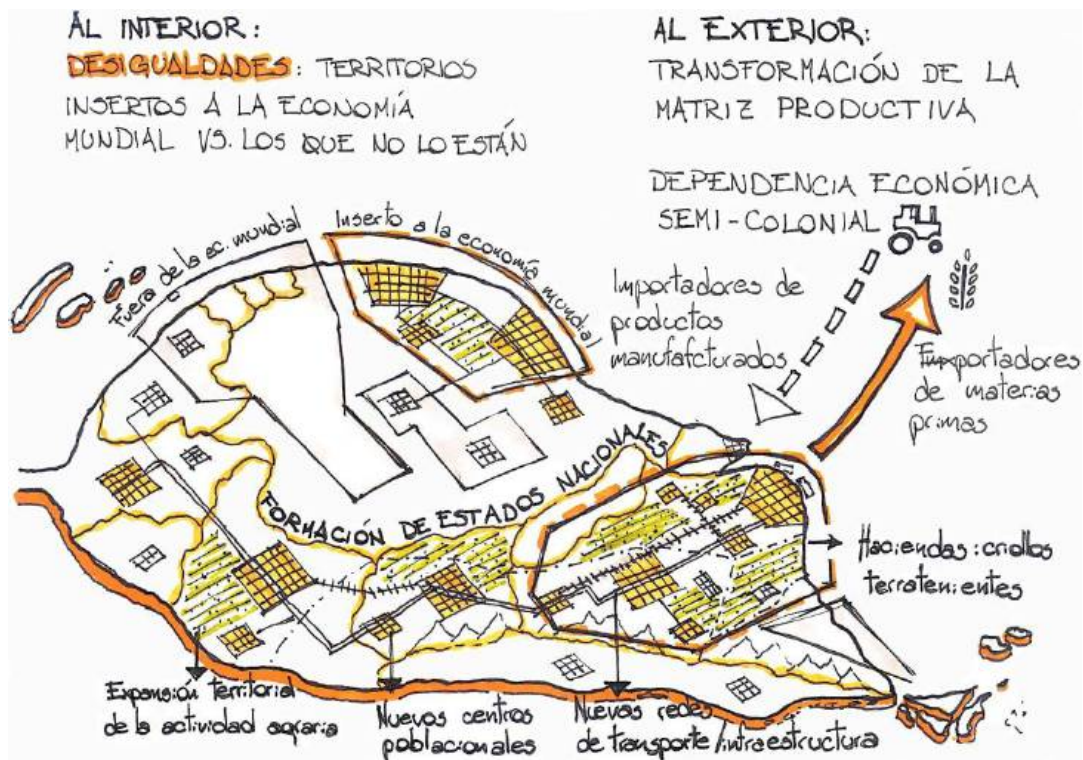 AL INTERIOR:
DESIGUALDADES: TERRITORIOS
INSERTOS A LA ECONOMÍA
MUNDIAL VS. LOS QUE NO LO ESTÁN
AL EXTERIOR:
TRANSFORMACIÓN DE LA
MATRIZ PRODUCTIVA
DEPENDENCIA ECONÓMICA
SEMI-COLONIAL
Fuera de la ec. mundial
Inserto a la economía mundial
Importadores de
productos
manufafcturados
de materias
primas
FORMACIÓN DE ESTADOS NACIONALES
Haciendas: criollos
terratenientes
Expansión territorial
de la actividad agraria
Nuevos centros
poblacionales
Nuevas redes
de transporte/intraestructura